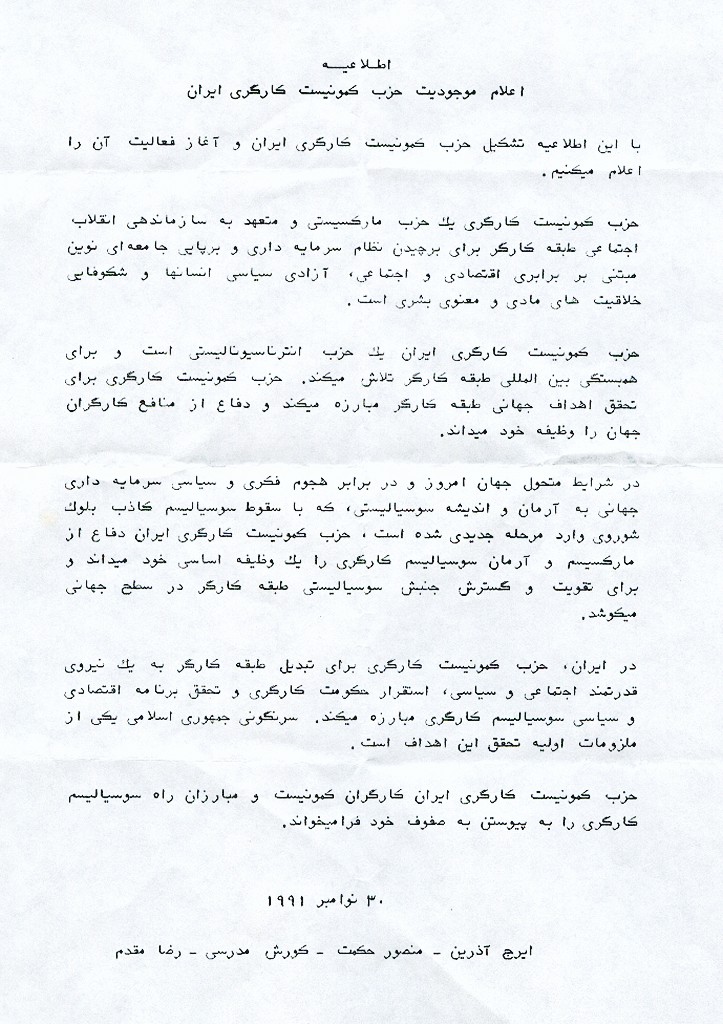 اطلاعیـــه
اعلام موجودیت حزب کمونیست کارگری ایران
با این اطلاعیه تشکیل حزب کمونیست کارگری ایران و آغاز فعالیت آن را
اعلام میکنیم.
حزب کمونیست کارگری یك حزب مارکسیستی و متعهد به سازماندهی انقلاب
اجتماعی طبقه کارگر برای برچیدن نظام سرمایه داری و برپایی جامعه‌ای نوین
مبتنی بر برابری اقتصادی و اجتماعی، آزادی سیاسی انسانها و شکوفایی
خلاقیت های مادی و معنوی بشری است.
حزب کمونیست کارگری ایران یك حزب انترناسیونالیستی است و برای
همبستگی بین المللی طبقه کارگر تلاش میکند. حزب کمونیست کارگری برای
تحقق اهداف جهانی طبقه کارگر مبارزه میکند و دفاع از منافع کارگران
جهان را وظیفه خود میداند.
در شرایط متحول جهان امروز و در برابر هجوم فکری و سیاسی سرمایه داری
جهانی به آرمان و اندیشه سوسیالیستی، که با سقوط سوسیالیسم کاذب بلوك
شوروی وارد مرحله جدیدی شده است، حزب کمونیست کارگری ایران دفاع از
مارکسیسم و آرمان سوسیالیسم کارگری را یك وظیفه اساسی خود میداند و
برای تقویت و گسترش جنبش سوسیالیستی طبقه کارگر در سطح جهانی
میکوشد.
در ایران، حزب کمونیست کارگری برای تبدیل طبقه کارگر به یك نیروی
قدرتمند اجتماعی و سیاسی، استقرار حکومت کارگری و تحقق برنامه اقتصادی
و سیاسی سوسیالیسم کارگری مبارزه میکند. سرنگونی جمهوری اسلامی یکی از
ملزومات اولیه تحقق این اهداف است.
حزب کمونیست کارگری ایران کارگران کمونیست و مبارزان راه سوسیالیسم
کارگری را به پیوستن به صفوف خود فرامیخواند.
۳۰ نوامبر ۱۹۹۱
ایرج آذرین - منصور حکمت - کورش مدرسی - رضا مقدم